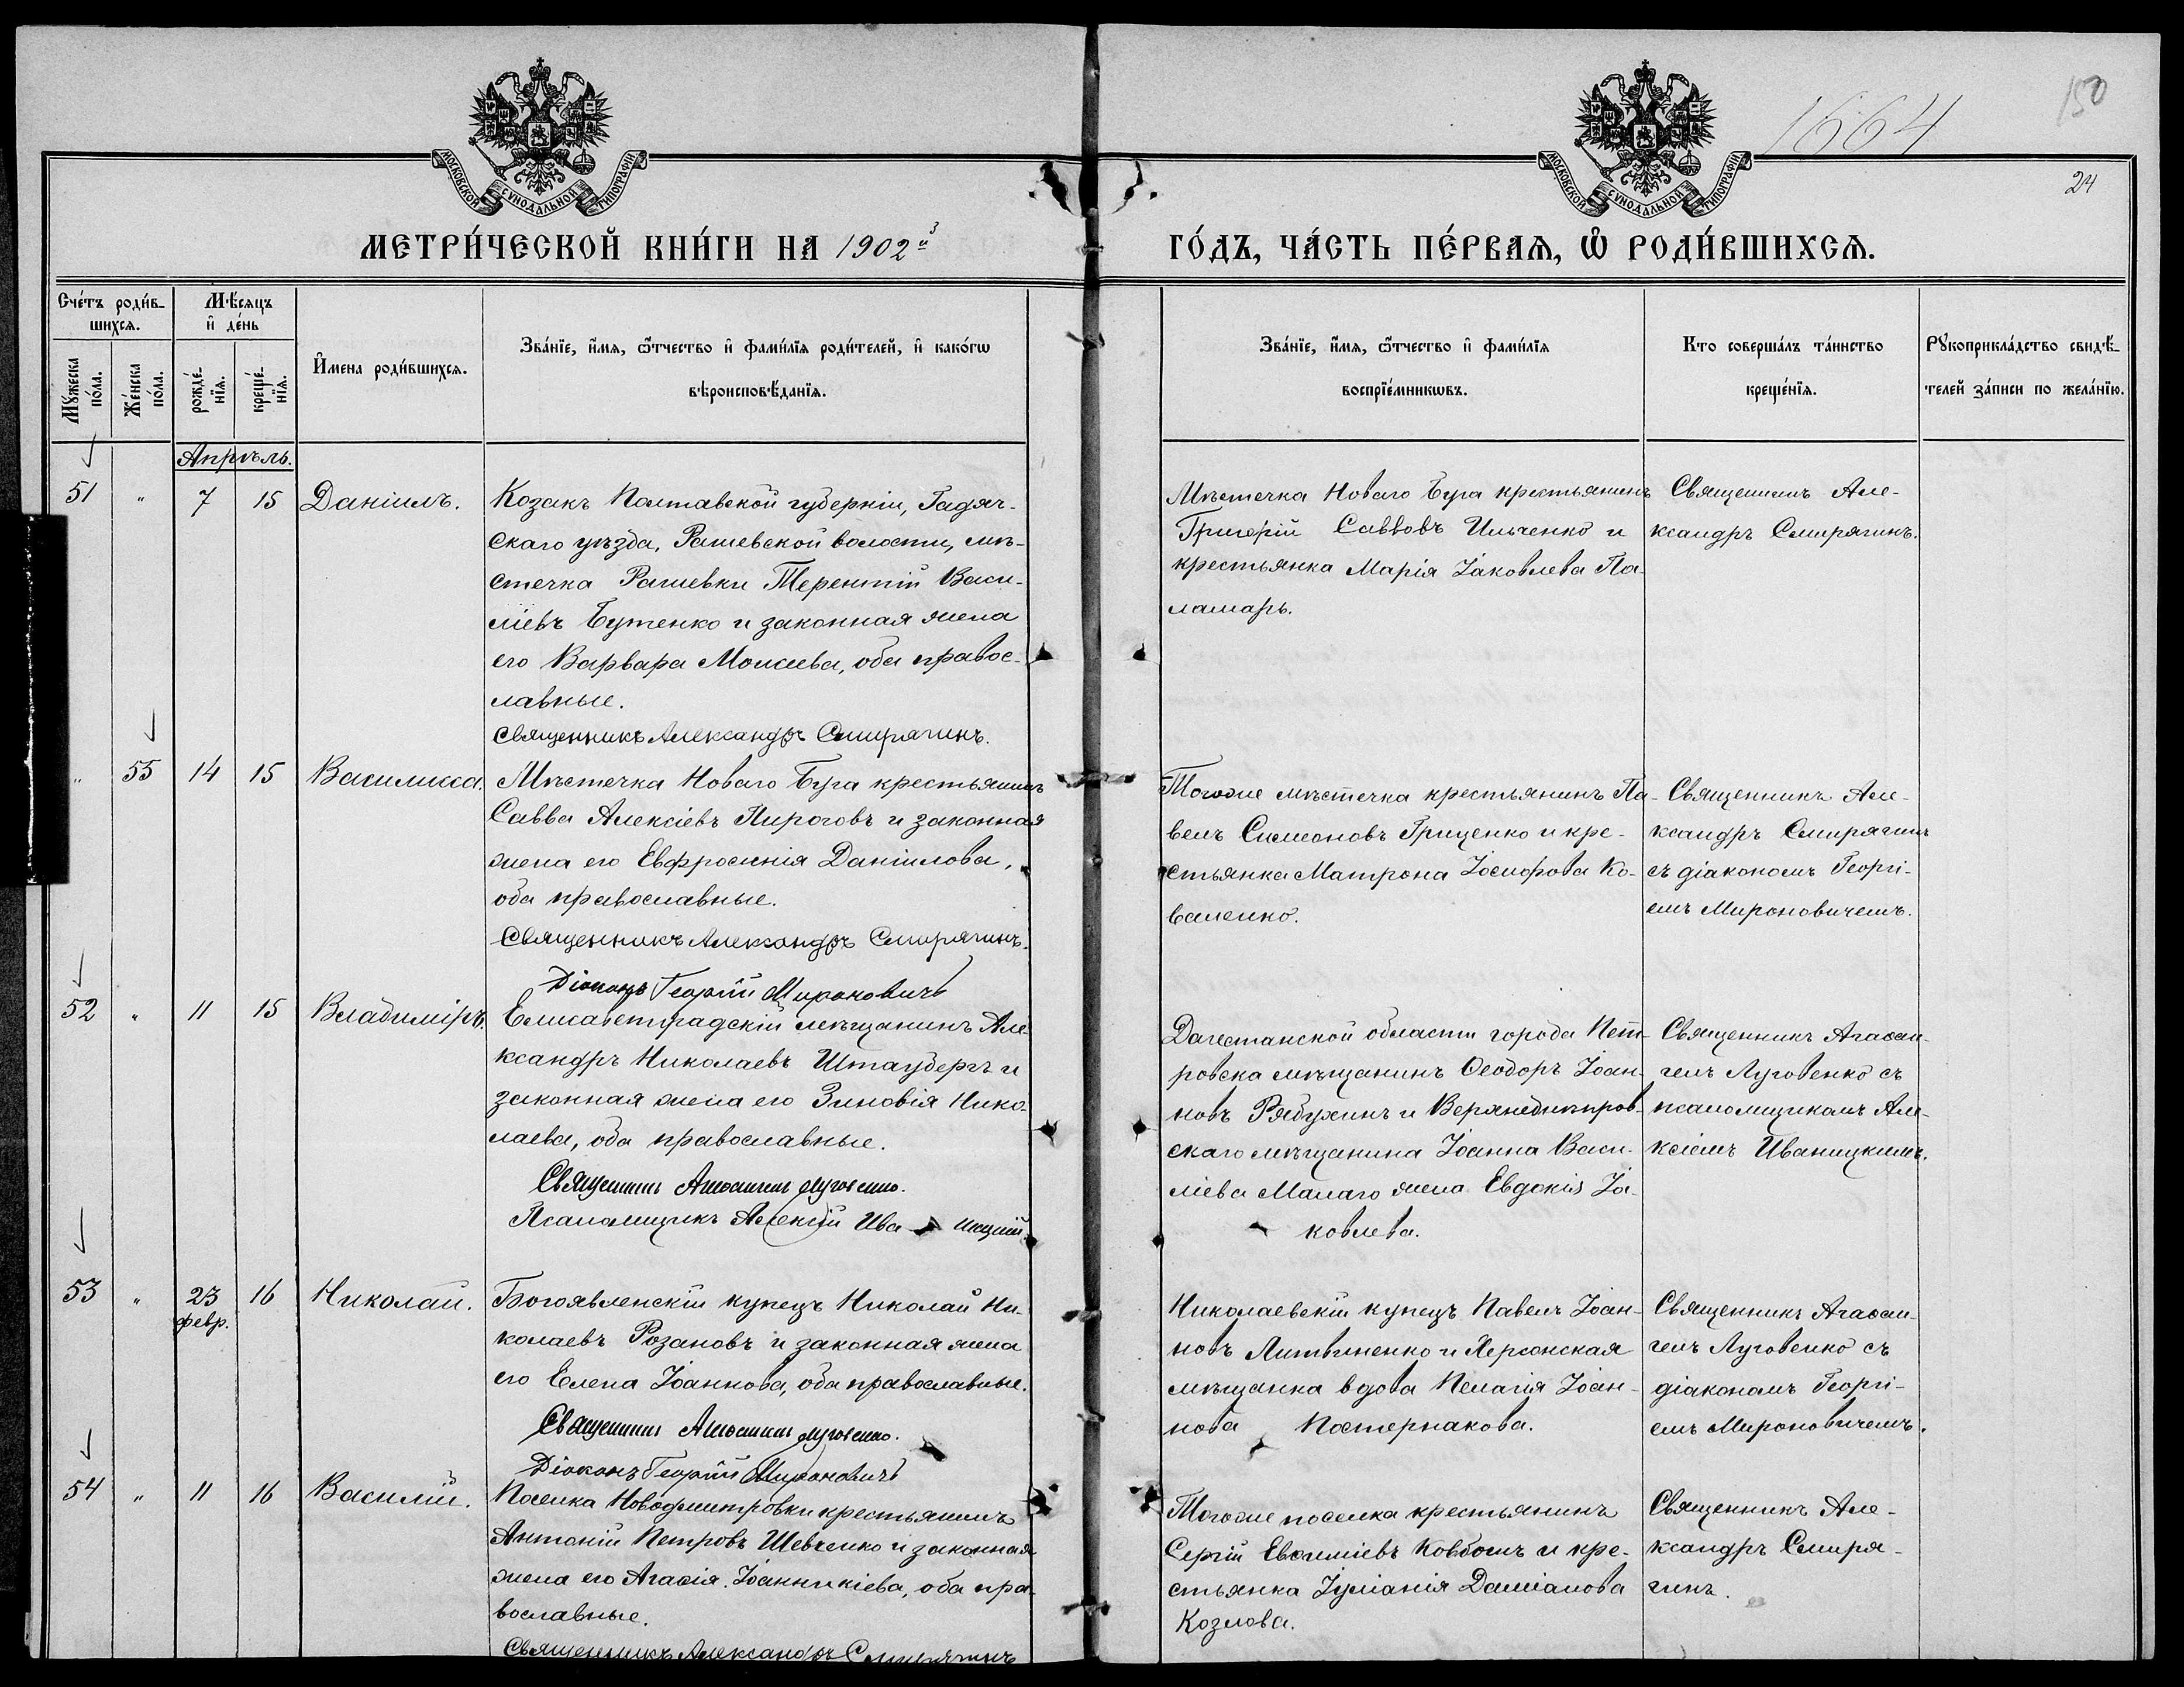 1664
150
24
МОСКОВСКОЙ СѴНОДАЛЬНОЙ ТИПОГРАФІИ
МОСКОВСКОЙ СѴНОДАЛЬНОЙ ТИПОГРАФІИ
МЕТРИ́ЧЕСКОЙ КНИ́ГИ НА 1902й 3
ГО́ДЪ, ЧА́СТЬ ПЕ́РВАЯ, Ѡ҆ РОДИ́ВШИХСЯ.
Сче́тъ роди́в-
шихся.
Мѣ́сяцъ
и҆ де́нь
Мꙋ́жеска по́ла.
Же́нска по́ла.
рожде́-
нїя.
креще́-
нїя.
И҆мена роди́вшихся.
Зва́нїе, и҆́мя, ѻ҆́тчество и҆ фами́лїя роди́телей, и҆ како́гѡ
вѣроисповѣ́данїя.
Зва́нїе, и҆́мя, ѻ҆́тчество и҆ фами́лїя
воспрїе́мникѡвъ.
Кто соверша́лъ та́инство
креще́нїя.
Рꙋкоприкла́дство свидѣ́-
телей за́писи по жела́нїю.
Апрѣль.
51 " 7 15 Даніилъ.
Козакъ Полтавской губерніи, Гадяч-
скаго уѣзда, Рашевской волости, мѣ-
стечка Рашевки Терентій Васи-
ліевъ Бутенко и законная жена
его Варвара Моисеева, оба правос-
лавные.
Священникъ Александръ Смирягинъ.
Мѣстечка Новаго Буга крестьянинъ
Григорій Саввовъ Ильченко и
крестьянка Марія Іаковлева Па-
ламарь.
Священникъ Але-
ксандръ Смирягинъ.
" 55 14 15 Василисса.
Мѣстечка Новаго Буга крестьянинъ
Савва Алексіевъ Пироговъ и законная
жена его Евфросинія Даніилова,
оба православные.
Священникъ Александръ Смирягинъ.
Діаконъ Георгій Мироновичъ
Тогоже мѣстечка крестьянинъ Па-
велъ Симеоновъ Гриценко и кре-
стьянка Матрона Іосифова Ко-
валенко.
Священникъ Але-
ксандръ Смирягинъ
съ діакономъ Георгі-
емъ Мироновичемъ.
52 " 11 15 Владиміръ.
Елисаветградскій мѣщанинъ Але-
ксандръ Николаевъ Штаубергъ и
законная жена его Зиновія Нико-
лаева, оба православные.
Священникъ Агаѳангелъ Луговенко.
Псаломщикъ Алексій Ива ницкій.
Дагестанской области города Пет-
ровска мѣщанинъ Ѳеодоръ Іоан-
новъ Рябухинъ и Верхнеднѣпров-
скаго мѣщанина Іоанна Васи-
ліева Малаго жена Евдокія Іа-
ковлева.
Священникъ Агаѳан-
гелъ Луговенко съ
псаломщикомъ Але-
ксіемъ Иваницкимъ.
53 " 23 16 Николай.
февр.
Богоявленскій купецъ Николай Ни-
колаевъ Розановъ и законная жена
его Елена Іоаннова, оба православные.
Священникъ Агаѳангелъ Луговенко.
Діаконъ Георгій Мироновичъ
Николаевскій купецъ Павелъ Іоан-
новъ Литвиненко и Херсонская
мѣщанка вдова Пелагія Іоан-
нова Постернакова.
Священникъ Агаѳан-
гелъ Луговенко съ
діакономъ Георгі-
емъ Мироновичемъ.
54 " 11 16 Василій.
Поселка Новодмитровки крестьянинъ
Антоній Петровъ Шевченко и законная
жена его Агаѳія Іоанникіева, оба пра-
вославные.
Священникъ Александръ Смирягинъ
Тогоже поселка крестьянинъ
Сергій Евѳиміевъ Ковбомъ и кре-
стьянка Іуліанія Даміанова
Козлова.
Священникъ Але-
ксандръ Смиря-
гинъ.